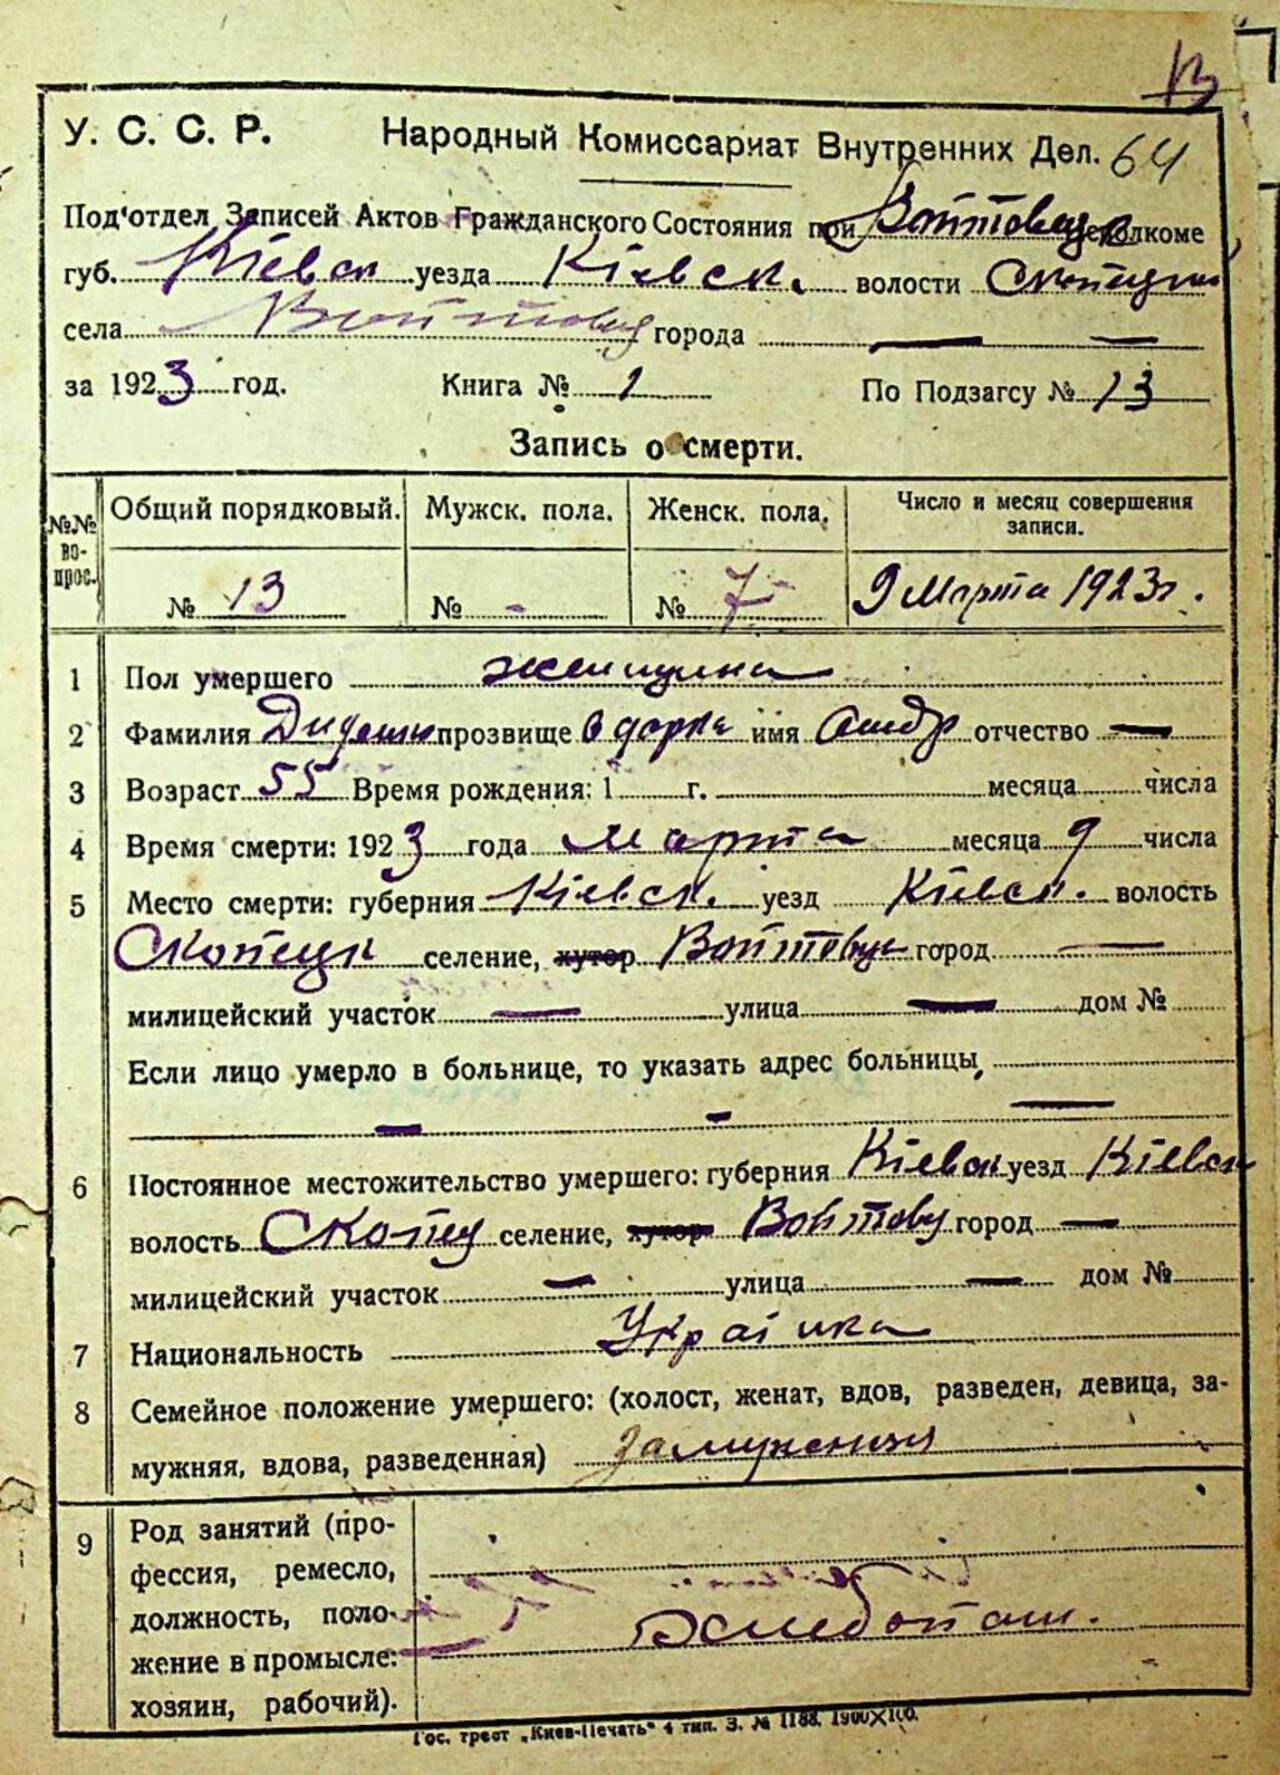 13
У. С. С. Р. Народный Комиссариат Внутренних Дел. 64
Под'отдел Записей Актов Гражданского Состояния при исполкоме
губ. Кіевск уезда Кіевск. волости
села города — —
за 1923 год. Книга № 1 По Подзагсу № 13
Запись о смерти.
№№ вопрос. Общий порядковый. Мужск. пола. Женск. пола. Число и месяц совершения записи.
№ 13 № - № 7 9 Марта 1923 г.
1 Пол умершего женщина
2 Фамилия прозвище имя отчество —
3 Возраст 55 Время рождения: 1 г. месяца числа
4 Время смерти: 1923 года марта месяца 9 числа
5 Место смерти: губерния Кіевск. уезд Кіевск. волость
Скопецк селение, хутор город —
милицейский участок — улица — дом №
Если лицо умерло в больнице, то указать адрес больницы,
— - —
6 Постоянное местожительство умершего: губерния Кіевск уезд Кіевск
волость Скопец селение, хутор Войтовц город —
милицейский участок — улица — дом №
7 Национальность Украінка
8 Семейное положение умершего: (холост, женат, вдов, разведен, девица, за-
мужняя, вдова, разведенная) замужняя
9 Род занятий (про-
фессия, ремесло,
должность, поло-
жение в промысле:
хозяин, рабочий).
Гос. трест „Киев-Печать" 4 тип. З. № 1188. 1900×100.